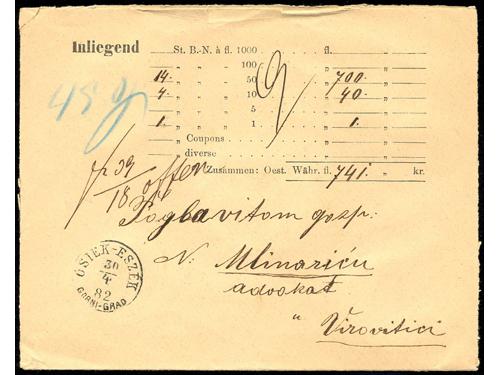 Inliegend St. B.-N. à fl. 1000 fl. „
„ „ „ 100 „ „
14. „ „ „ 50 „ 700. „
4. „ „ „ 10 „ 40. „
„ „ „ 5 „ „
1. „ „ „ 1 „ 1. „
„ Coupons „ „
„ diverse „ „
Zusammen: Oest. Währ. fl. 741. kr.
offen
Poglavitom gosp:
N: Mlinariću
advokat
„ Virovitici
OSIEK-ESZÉK
30
4
82
GORNI-GRAD